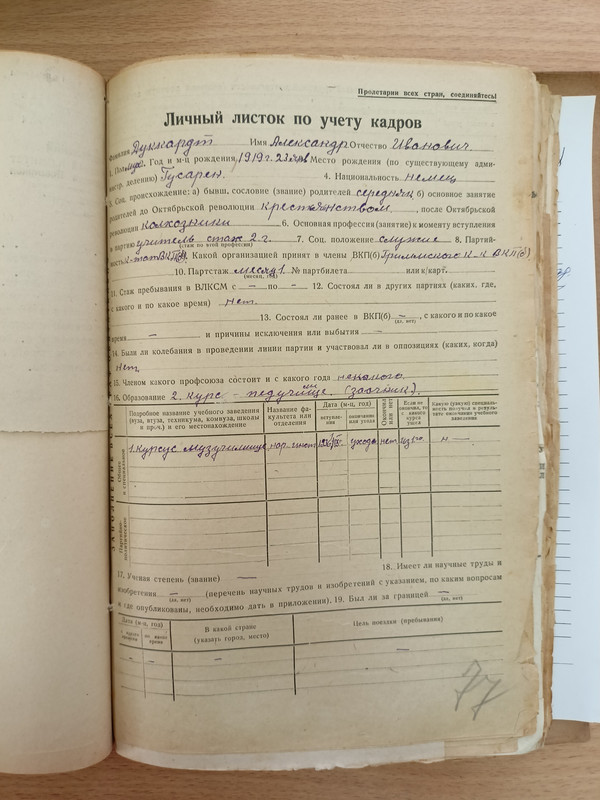 Пролетарии всех стран, соединяйтесь!
Личный листок по учету кадров
Фамилия Дуккардт Имя Александр Отчество Иванович
1. Пол муж. Год и м-ц рождения 1919 г. 23 Место рождения (по существующему адми-
нистр. делению) Гусарен. 4. Национальность немец
5. Соц. происхождение: а) бывш. сословие (звание) родителей середняк б) основное занятие
родителей до Октябрьской революции крестьянством, после Октябрьской
революции колхозники 6. Основная профессия (занятие) к моменту вступления
в партию учитель стаж 2 г. 7. Соц. положение служ 8. Партий-
(стаж по этой профессии)
ность ВКП(б) 9. Какой организацией принят в члены ВКП(б) К ВКП(б)
10. Партстаж месяц 1. № партбилета или к/карт.
(месяц, год)
11. Стаж пребывания в ВЛКСМ с – по – 12. Состоял ли в других партиях (каких, где,
с какого и по какое время) нет.
13. Состоял ли ранее в ВКП(б) – , с какого и по какое
(да, нет)
время – и причины исключения или выбытия –
14. Были ли колебания в проведении линии партии и участвовал ли в оппозициях (каких, когда)
нет.
15. Членом какого профсоюза состоит и с какого года
16. Образование 2 курс. – педучище. (заочник).
Подробное название учебного заведения (вуза, втуза, техникума, комвуза, школы и пр.) и его местонахождение
Название факультета или отделения
Дата (м-ц, год)
вступления
окончания или ухода
Окончил или нет
Если не окончил, то с какого курса ушел
Какую (узкую) специальность получил в результате окончания учебного заведения
Общее и специальное
1. Курсус музучилище нет
Партийно-политическое
17. Ученая степень (звание) — 18. Имеет ли научные труды и
изобретения – (перечень научных трудов и изобретений с указанием, по каким вопросам
(да, нет)
и где опубликованы, необходимо дать в приложении). 19. Был ли за границей –
(да, нет)
Дата (м-ц, год)
с какого времени
по какое время
В какой стране
(указать город, место)
Цель поездки (пребывания)
– – — —
77